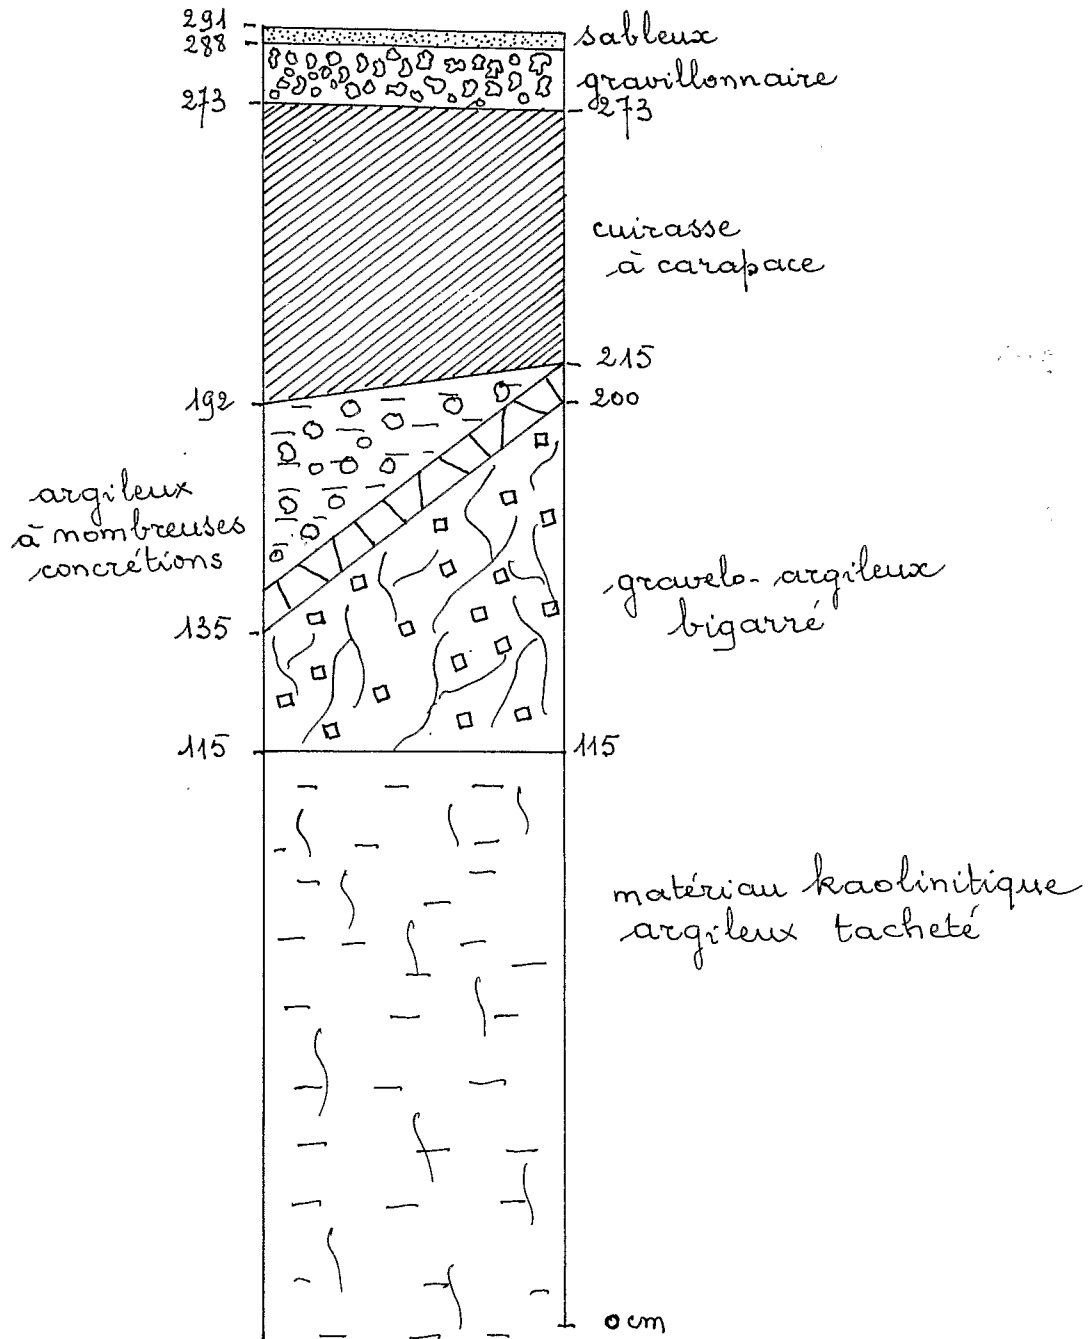 291
sableux
288
gravillonnaire
273
273
cuirasse
à carapace
215
192
200
argileux
à nombreuses
concrétions
gravelo-argileux
bigarré
135
115
115
matériau kaolinitique
argileux tacheté
0 cm